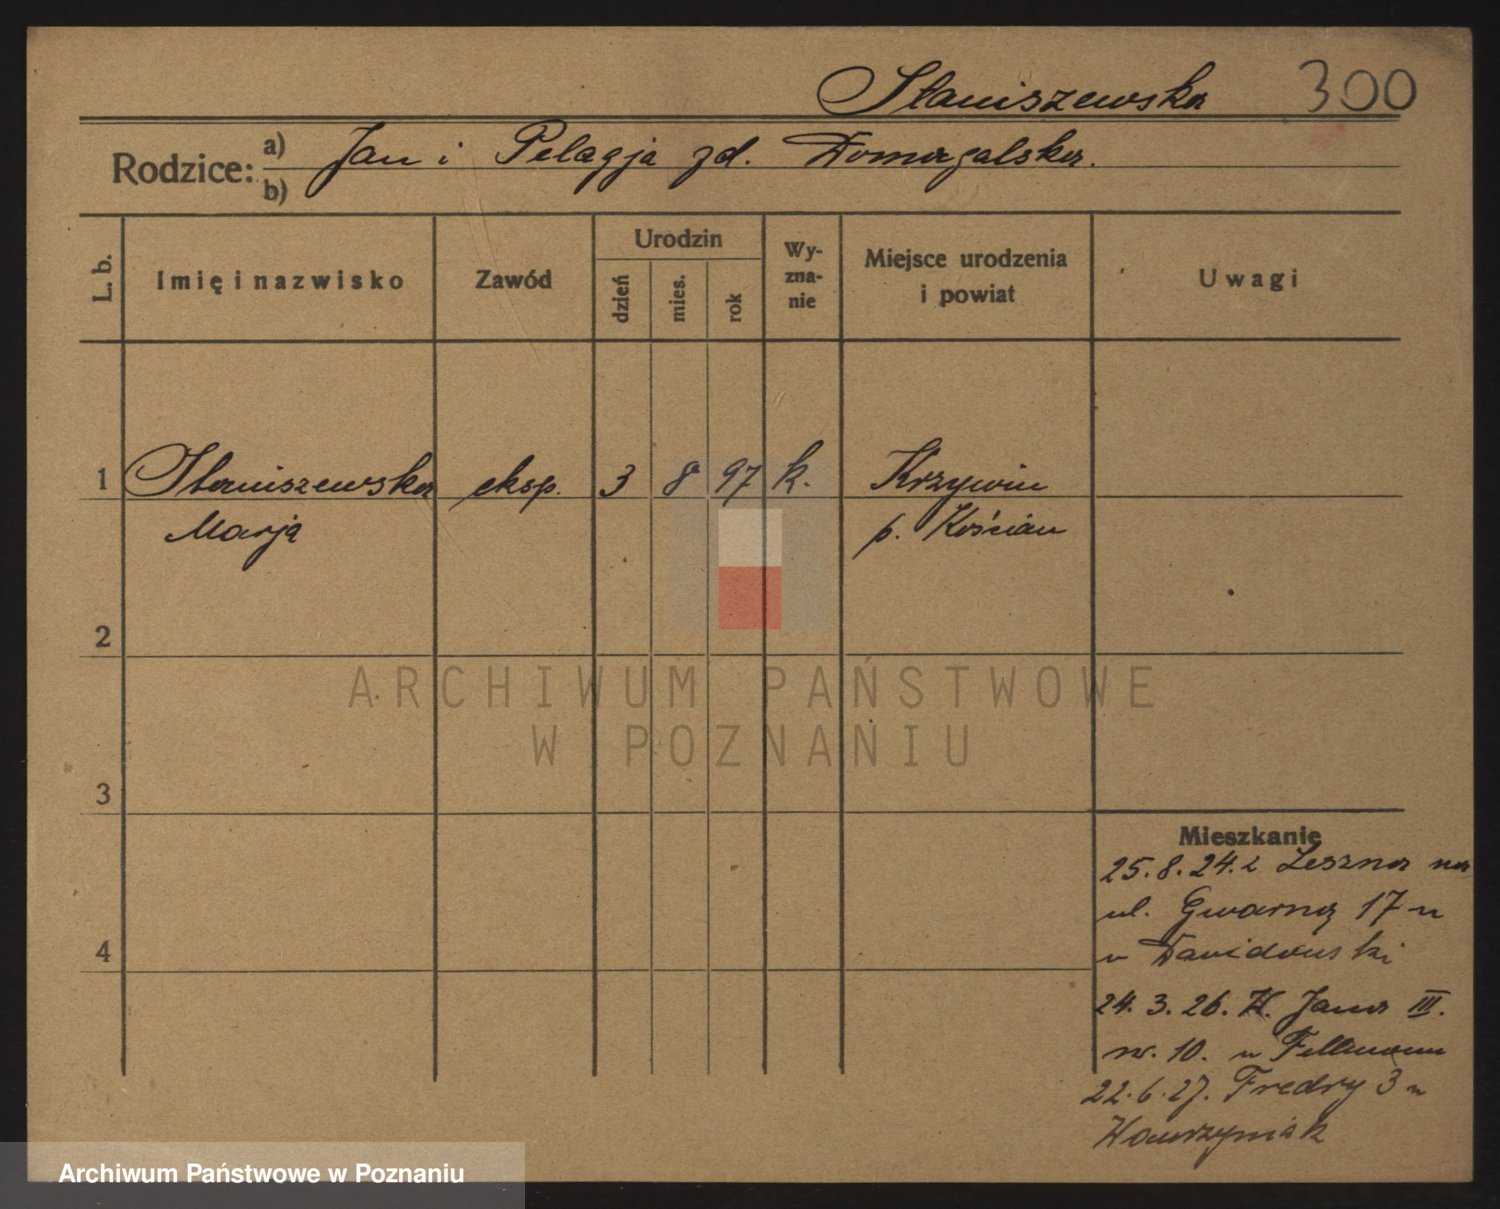 Staniszewska 300
Rodzice: a) Jan i Pelagja zd. Domagalska.
b)
L. b. Imię i nazwisko Zawód Urodzin dzień mies. rok Wyznanie Miejsce urodzenia i powiat Uwagi
1 Staniszewska eksp. 3 8 97 k. Krzywiń
Marja p. Kościan
2
ARCHIWUM PAŃSTWOWE
W POZNANIU
3
Mieszkanie
25.8.24. z Leszna na
ul. Gwarną 17 u
Dawidowski
4
24. 3. 26. Jana III.
nr. 10. u Fellmann
22.6.27. Fredry 3 u
Wawrzyniak
Archiwum Państwowe w Poznaniu